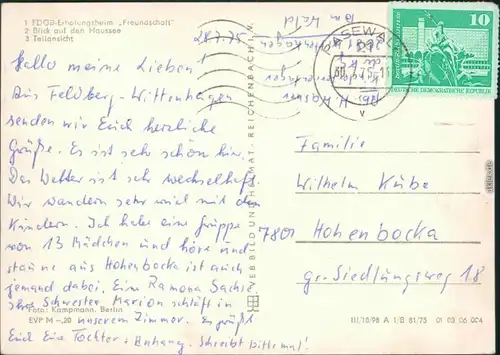 1 FDGB-Erholungsheim „Freundschaft"
2 Blick auf den Haussee
3 Teilansicht
28.7.75
Hallo meine Lieben!
Aus Feldberg-Wittenhagen
senden wir Euch herzliche
Grüße. Es ist sehr schön hier.
Das Wetter ist sehr wechselhaft.
Wir wandern sehr viel mit den
Kindern. Ich habe eine Gruppe
von 13 Mädchen und höre und
staune aus Hohenbocka ist auch
jemand dabei. Eine Ramona Sachse,
ihre Schwester Marion schläft in
Foto: Kampmann, Berlin
unserem Zimmer. Es grüßt
EVP M –,20
Euch Eure Tochter + Anhang. Schreibt bitte mal!
VEB BILD UND HEIMAT REICHENBACH i. V.
10
DEUTSCHE DEMOKRATISCHE REPUBLIK
Familie
Wilhelm Kube
7801 Hohenbocka
gr. Siedlungsweg 18
III/18/98 A 1/B 81/75 01 03 06 004